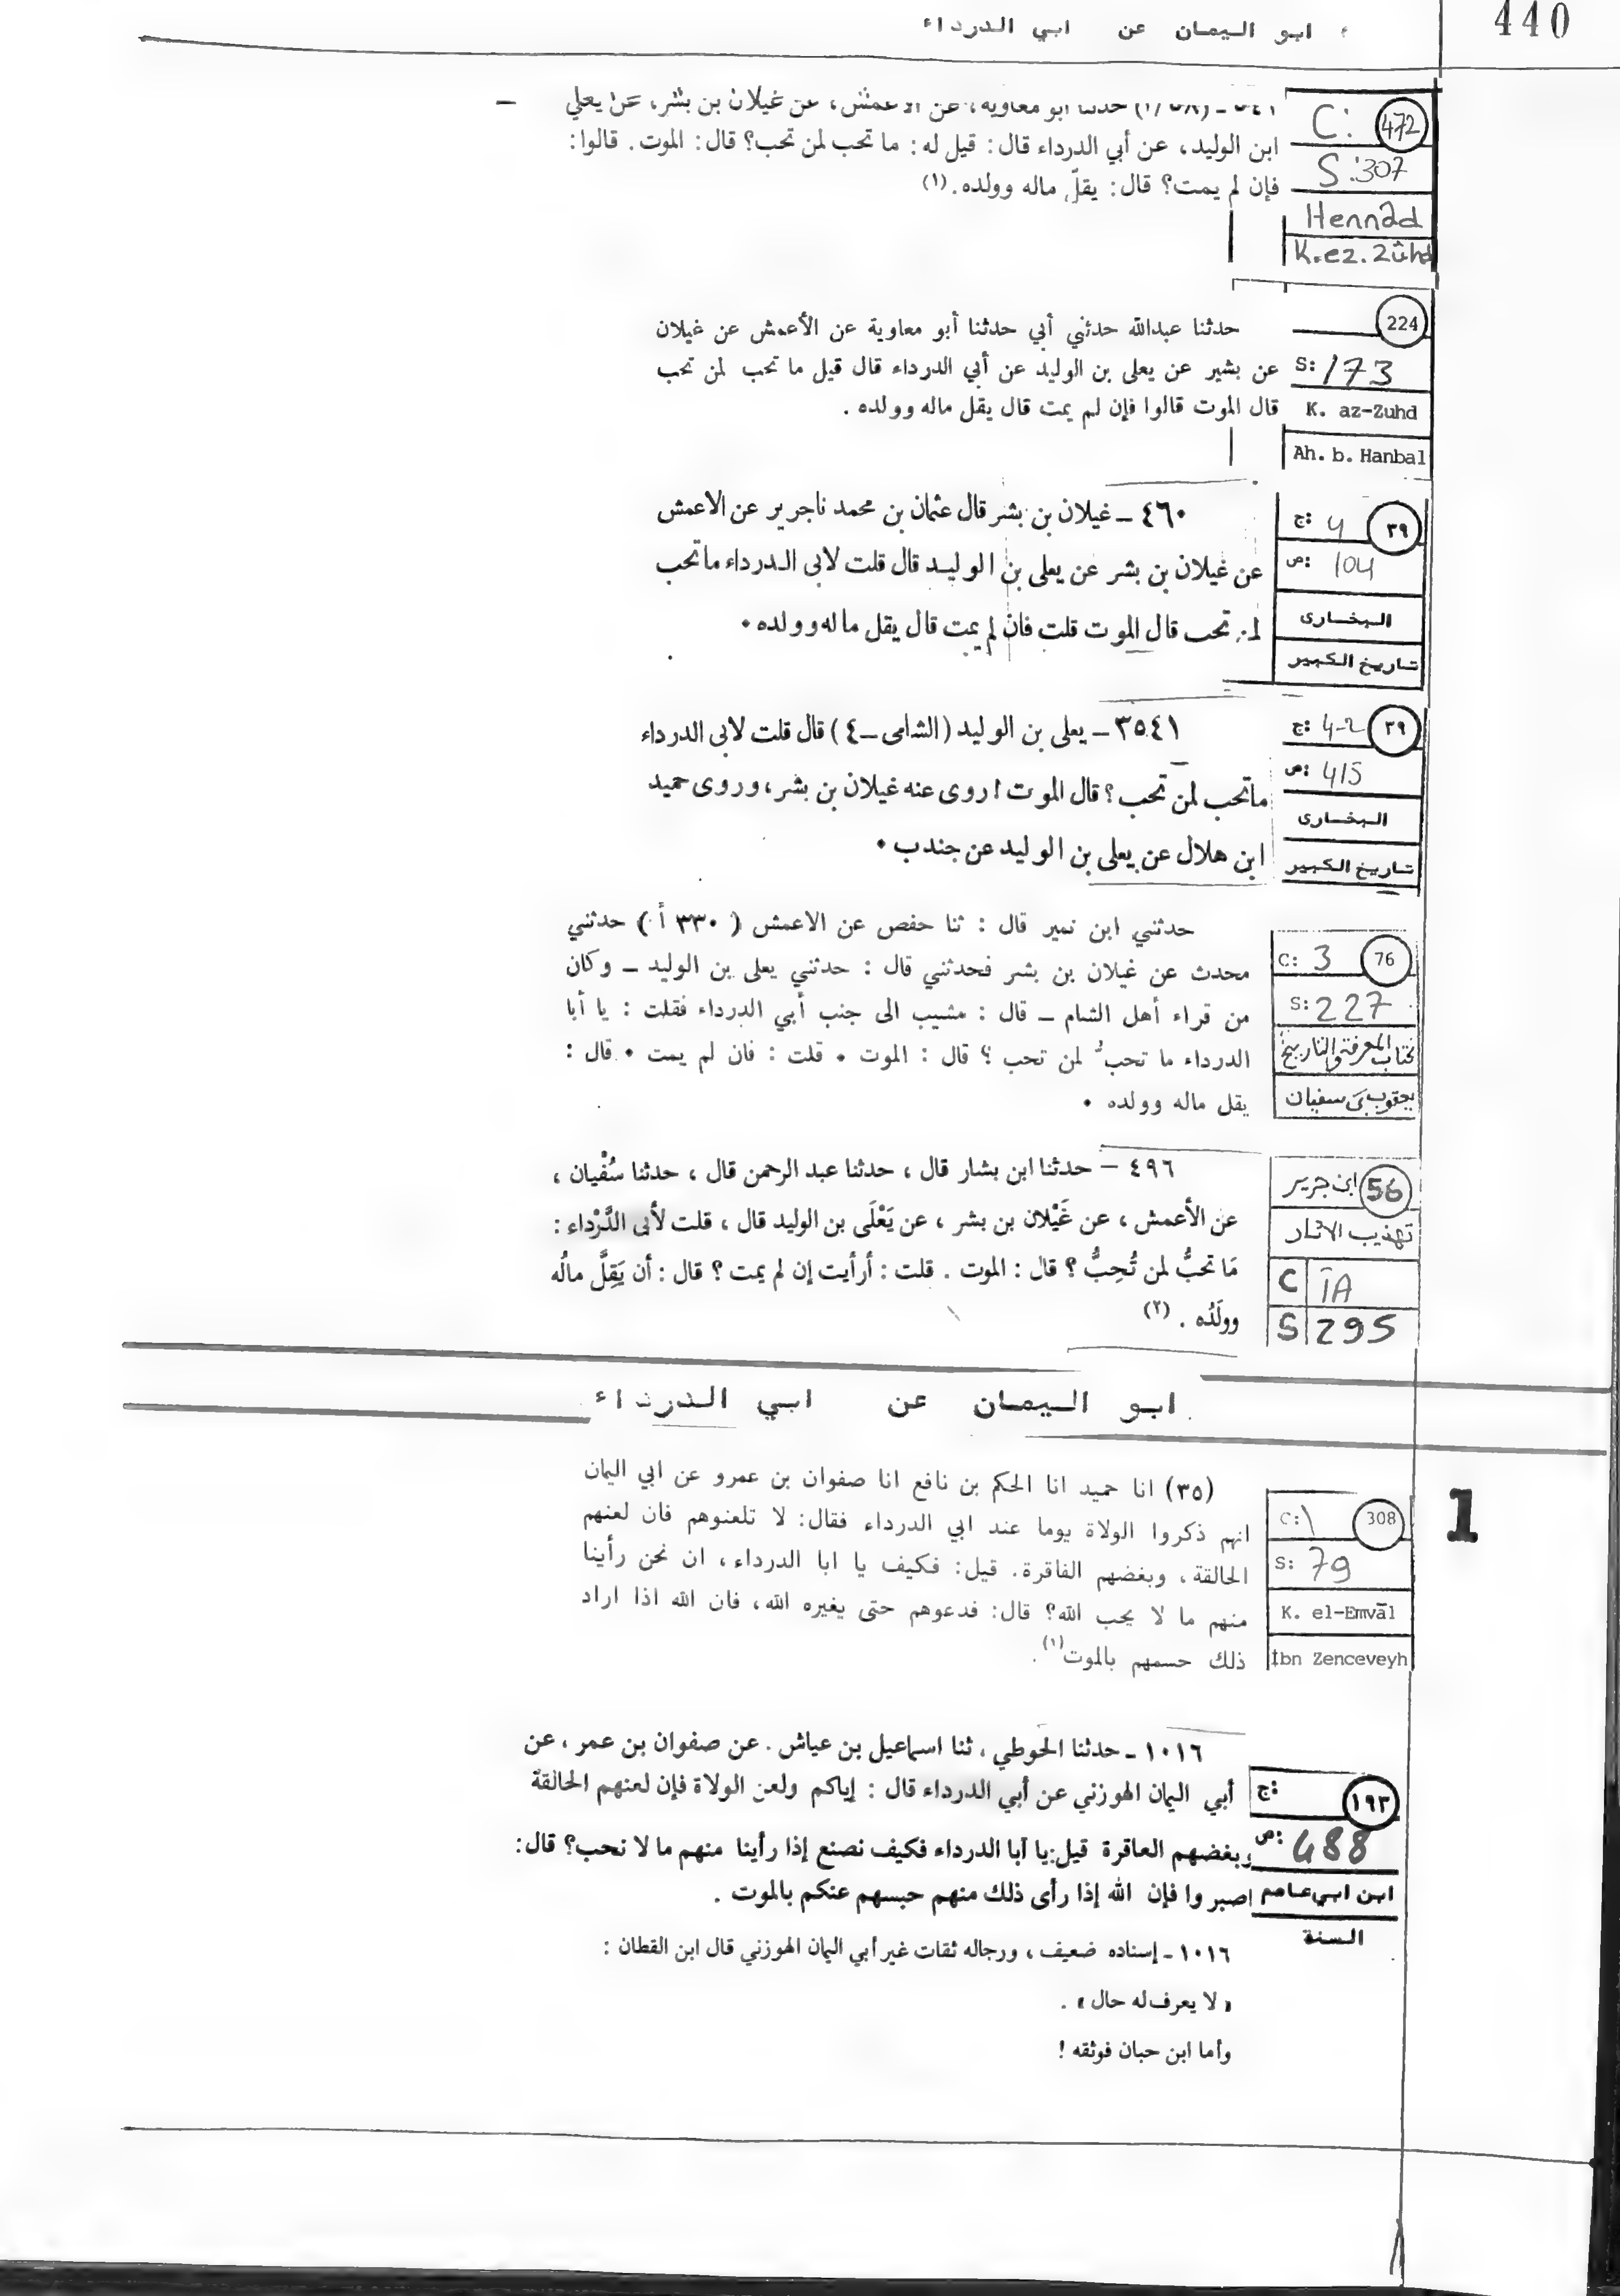 440
ابو اليمان عن ابي الدرداء
حدثنا أبو معاوية، عن الأعمش، عن غيلان بن بشر، عن يعلي
ابن الوليد، عن أبي الدرداء قال: قيل له: ما تحب لمن تحب؟ قال: الموت. قالوا:
فإن لم يمت؟ قال: يقلّ ماله وولده.(١)
C: 472
S: 307
Hennad
K.ez.Zühd
حدثنا عبدالله حدثني أبي حدثنا أبو معاوية عن الأعمش عن غيلان
عن بشير عن يعلى بن الوليد عن أبي الدرداء قال قيل ما تحب لمن تحب
قال الموت قالوا فإن لم يمت قال يقل ماله وولده .
224
S: 173
K. az-Zuhd
Ah. b. Hanbal
٤٦٠ ـ غيلان بن بشر قال عثمان بن محمد ناجرير عن الاعمش
عن غيلان بن بشر عن يعلى بن الوليد قال قلت لابى الدرداء ماتحب
لمن تحب قال الموت قلت فان لم يمت قال يقل ماله وولده •
ج: 4 ٣٩
ص: 104
البخارى
تاريخ الكبير
٣٥٤١ ـ يعلى بن الوليد (الشامى ـ ٤) قال قلت لابى الدرداء
ماتحب لمن تحب؟ قال الموت ! روى عنه غيلان بن بشر، وروى حميد
ابن هلال عن يعلى بن الوليد عن جندب •
ج: 4-2 ٣٩
ص: 415
البخارى
تاريخ الكبير
حدثني ابن نمير قال : ثنا حفص عن الاعمش ( ٣٣٠ أ ) حدثني
محدث عن غيلان بن بشر فحدثني قال : حدثني يعلى بن الوليد ـ وكان
من قراء أهل الشام ـ قال : مشيب الى جنب أبي الدرداء فقلت : يا أبا
الدرداء ما تحبُّ لمن تحب ؟ قال : الموت • قلت : فان لم يمت • قال :
يقل ماله وولده •
C: 3 76
S: 227
كتاب المعرفة والتاريخ
يعقوب بن سفيان
٤٩٦ – حدثنا ابن بشار قال ، حدثنا عبد الرحمن قال ، حدثنا سُفْيان ،
عن الأعمش ، عن غَيْلان بن بشر ، عن يَعْلَى بن الوليد قال ، قلت لأبى الدَّرْداء :
مَا تحبُّ لمن تُحِبُّ ؟ قال : الموت . قلت : أرأيت إن لم يمت ؟ قال : أن يَقِلَّ مالُه
وولَدُه . (٢)
ابن جرير 56
تهذيب الاثار
C IA
S 295
ابو اليمان عن ابي الدرداء
1
(٣٥) انا حميد انا الحكم بن نافع انا صفوان بن عمرو عن ابي اليمان
انهم ذكروا الولاة يوما عند ابي الدرداء فقال: لا تلعنوهم فان لعنهم
الحالقة، وبغضهم الفاقرة. قيل: فكيف يا ابا الدرداء، ان نحن رأينا
منهم ما لا يحب الله؟ قال: فدعوهم حتى يغيره الله، فان الله اذا اراد
ذلك حسمهم بالموت(١).
C: 1 308
S: 79
K. el-Emvāl
İbn Zenceveyh
١٠١٦ ـ حدثنا الحوطي ، ثنا اسماعيل بن عياش . عن صفوان بن عمر ، عن
أبي اليمان الهوزني عن أبي الدرداء قال : إياكم ولعن الولاة فإن لعنهم الحالقة
وبغضهم العاقرة قيل: يا أبا الدرداء فكيف نصنع إذا رأينا منهم ما لا نحب؟ قال:
اصبروا فإن الله إذا رأى ذلك منهم حبسهم عنكم بالموت .
ج: ١٩٣
ص: 488
ابن ابي عاصم
السنة
١٠١٦ ـ إسناده ضعيف ، ورجاله ثقات غير أبي اليمان الهوزني قال ابن القطان :
« لا يعرف له حال » .
وأما ابن حبان فوثقه !